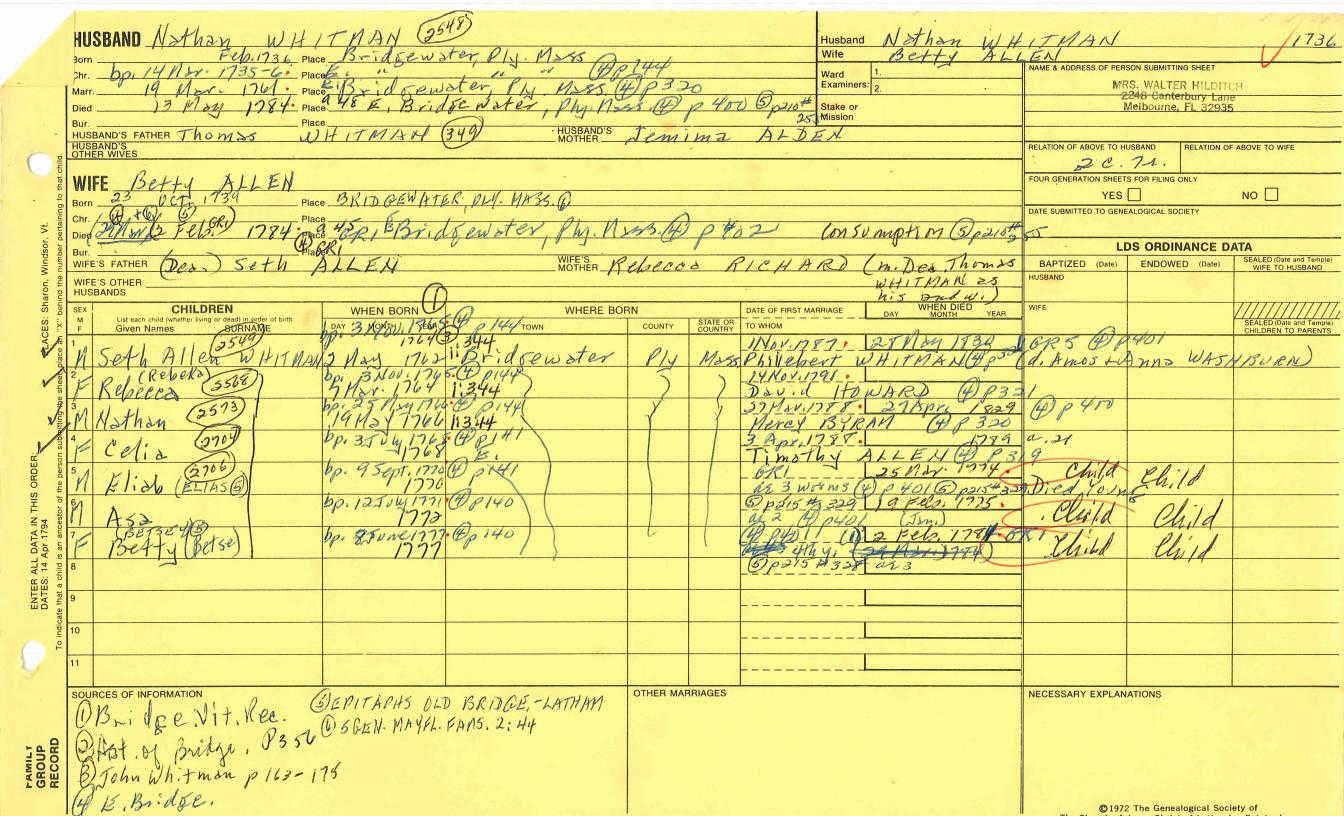 HUSBAND Nathan WHITMAN 2548
Born Feb. 1736 Place Bridgewater, Ply. Mass
Chr. bp. 14 Mar. 1735-6. Place E. " " " ④ p 144
Marr. 19 Mar. 1761. Place E. Bridgewater, Ply. Mass. ④ p 320
Died 13 May 1784. Place E. Bridgewater, Ply. Mass ④ p 400 ⑤ p210#
Bur. Place
HUSBAND'S FATHER Thomas WHITMAN 349 HUSBAND'S MOTHER Jemima ALDEN
HUSBAND'S OTHER WIVES
WIFE Betty ALLEN
Born 23 OCT. 1739 Place BRIDGEWATER, PLY. MASS. ⑥
Chr. Place
Died 2 Feb. 1784. Place E Bridgewater, Ply. Mass. ④ p 402 Consumption ⑤ p210#
Bur. Place
WIFE'S FATHER (Dea.) Seth ALLEN WIFE'S MOTHER Rebecca RICHARD (m. Dea. Thomas
WHITMAN as
his 2nd w.)
WIFE'S OTHER HUSBANDS
Husband Nathan WHITMAN 1736
Wife Betty ALLEN
Ward Examiners: 1.
2.
Stake or Mission
NAME & ADDRESS OF PERSON SUBMITTING SHEET
MRS. WALTER HILDITCH
2248 Canterbury Lane
Melbourne, FL 32935
RELATION OF ABOVE TO HUSBAND RELATION OF ABOVE TO WIFE
2 c. 7r.
FOUR GENERATION SHEETS FOR FILING ONLY
YES NO
DATE SUBMITTED TO GENEALOGICAL SOCIETY
LDS ORDINANCE DATA
BAPTIZED (Date) ENDOWED (Date) SEALED (Date and Temple) WIFE TO HUSBAND
HUSBAND
WIFE
SEALED (Date and Temple) CHILDREN TO PARENTS
SEX M F
CHILDREN
List each child (whether living or dead) in order of birth
Given Names SURNAME
WHEN BORN ①
DAY MONTH YEAR
WHERE BORN
TOWN COUNTY STATE OR COUNTRY
DATE OF FIRST MARRIAGE
TO WHOM
WHEN DIED
DAY MONTH YEAR
1 M Seth Allen WHITMAN 2549
bp. 3 Nov. 1765 ④ p 144
2 May 1762 1:344 Bridgewater Ply Mass
1 Nov. 1787. GRS ④ p401
Philebert WHITMAN (d. Amos + Anna WASHBURN)
2 F Rebecca (Rebeka) 2568
bp. 3 Nov. 1765 ④ p144
7 Mar. 1764 1:344
14 Nov. 1791.
David HOWARD ④ p321
3 M Nathan 2573
bp. 25 May 1766 ④ p 144
19 May 1766 1:344
27 Mar. 1788. 27 Apr. 1829 ④ p 400
Mercy BYRAM ④ p 320
4 F Celia 2704
bp. 3 July 1768. ④ p141
1768 E.
3 Apr. 1788. 1789 a. 21
Timothy ALLEN ④ p319
5 M Eliab (ELIAS ⑤) 2706
bp. 9 Sept. 1770 ④ p141
1770
GR1 25 Mar. 1774 Child Child
ae 3 worms ④ p401 ⑤ p215#329 Died Young
6 M Asa
bp. 12 July 1771 ④ p140
1772
⑤ p215 #329 19 Feb. 1775. Child Child
ae 2 ④ p401
7 F Betty (Betse) BETSEY ⑤
bp. 8 June 1777. ④ p140
1777
④ p401 2 Feb. 1781 GR1 Child Child
4thy.
⑤ p215 #328 ae 3
8
9
10
11
SOURCES OF INFORMATION
① Bridge. Vit. Rec.
② Hist. of Bridge. P 356
③ John Whitman p 163-175
④ E. Bridge.
⑤ EPITAPHS OLD BRIDGE.-LATHAM
⑥ 5 GEN. MAYFL. FAMS. 2:44
OTHER MARRIAGES
NECESSARY EXPLANATIONS
©1972 The Genealogical Society of
FAMILY GROUP RECORD
ENTER ALL DATA IN THIS ORDER:
DATES: 14 Apr 1794
PLACES: Sharon, Windsor, Vt.
To indicate that a child is an ancestor of the person submitting the sheet, place an "X" behind the number pertaining to that child.